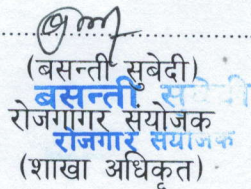 (बसन्ती सुबेदी)
बसन्ती
रोजगार संयोजक
रोजगार संयोजक
(शाखा अधिकृत)